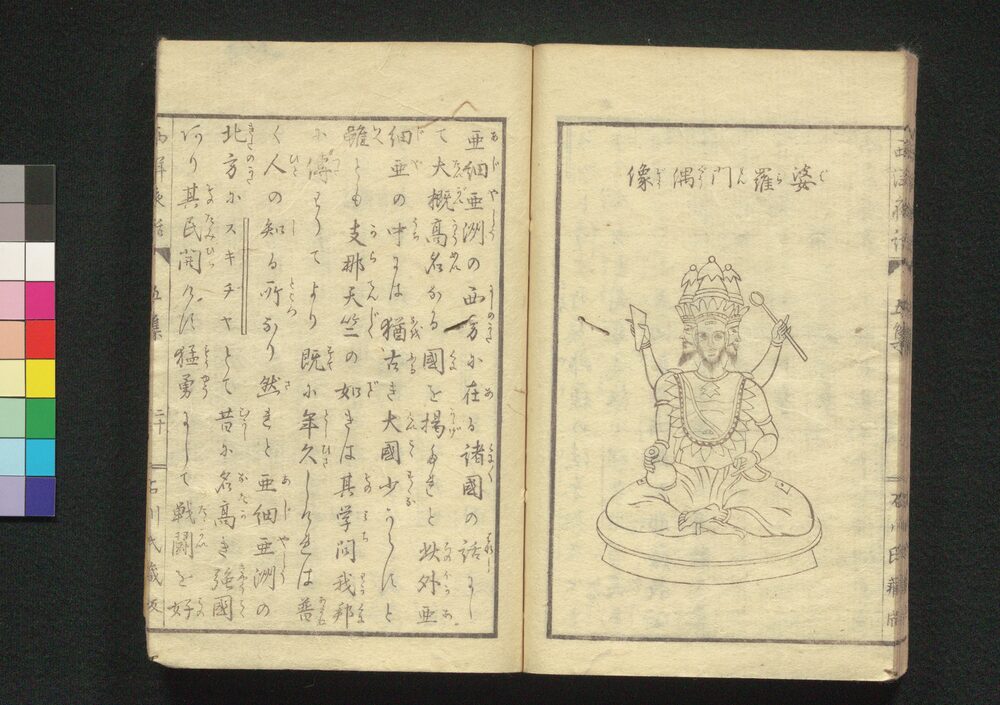 婆羅門偶像
亜細亜洲の西方に在る諸國の話にし
て大概高名なる國を揚たれと此外亜
細亜の中には猶古き大國少からすと
雖とも支那天竺の如きは其学問我邦
に傳りてより既に年久しけれは普
く人の知る所なり然れと亜細亜洲の
北方にスキヂヤとて昔に名高き強國
あり其民開けす猛勇にして戦闘を好
五集
二十
石川氏蔵板